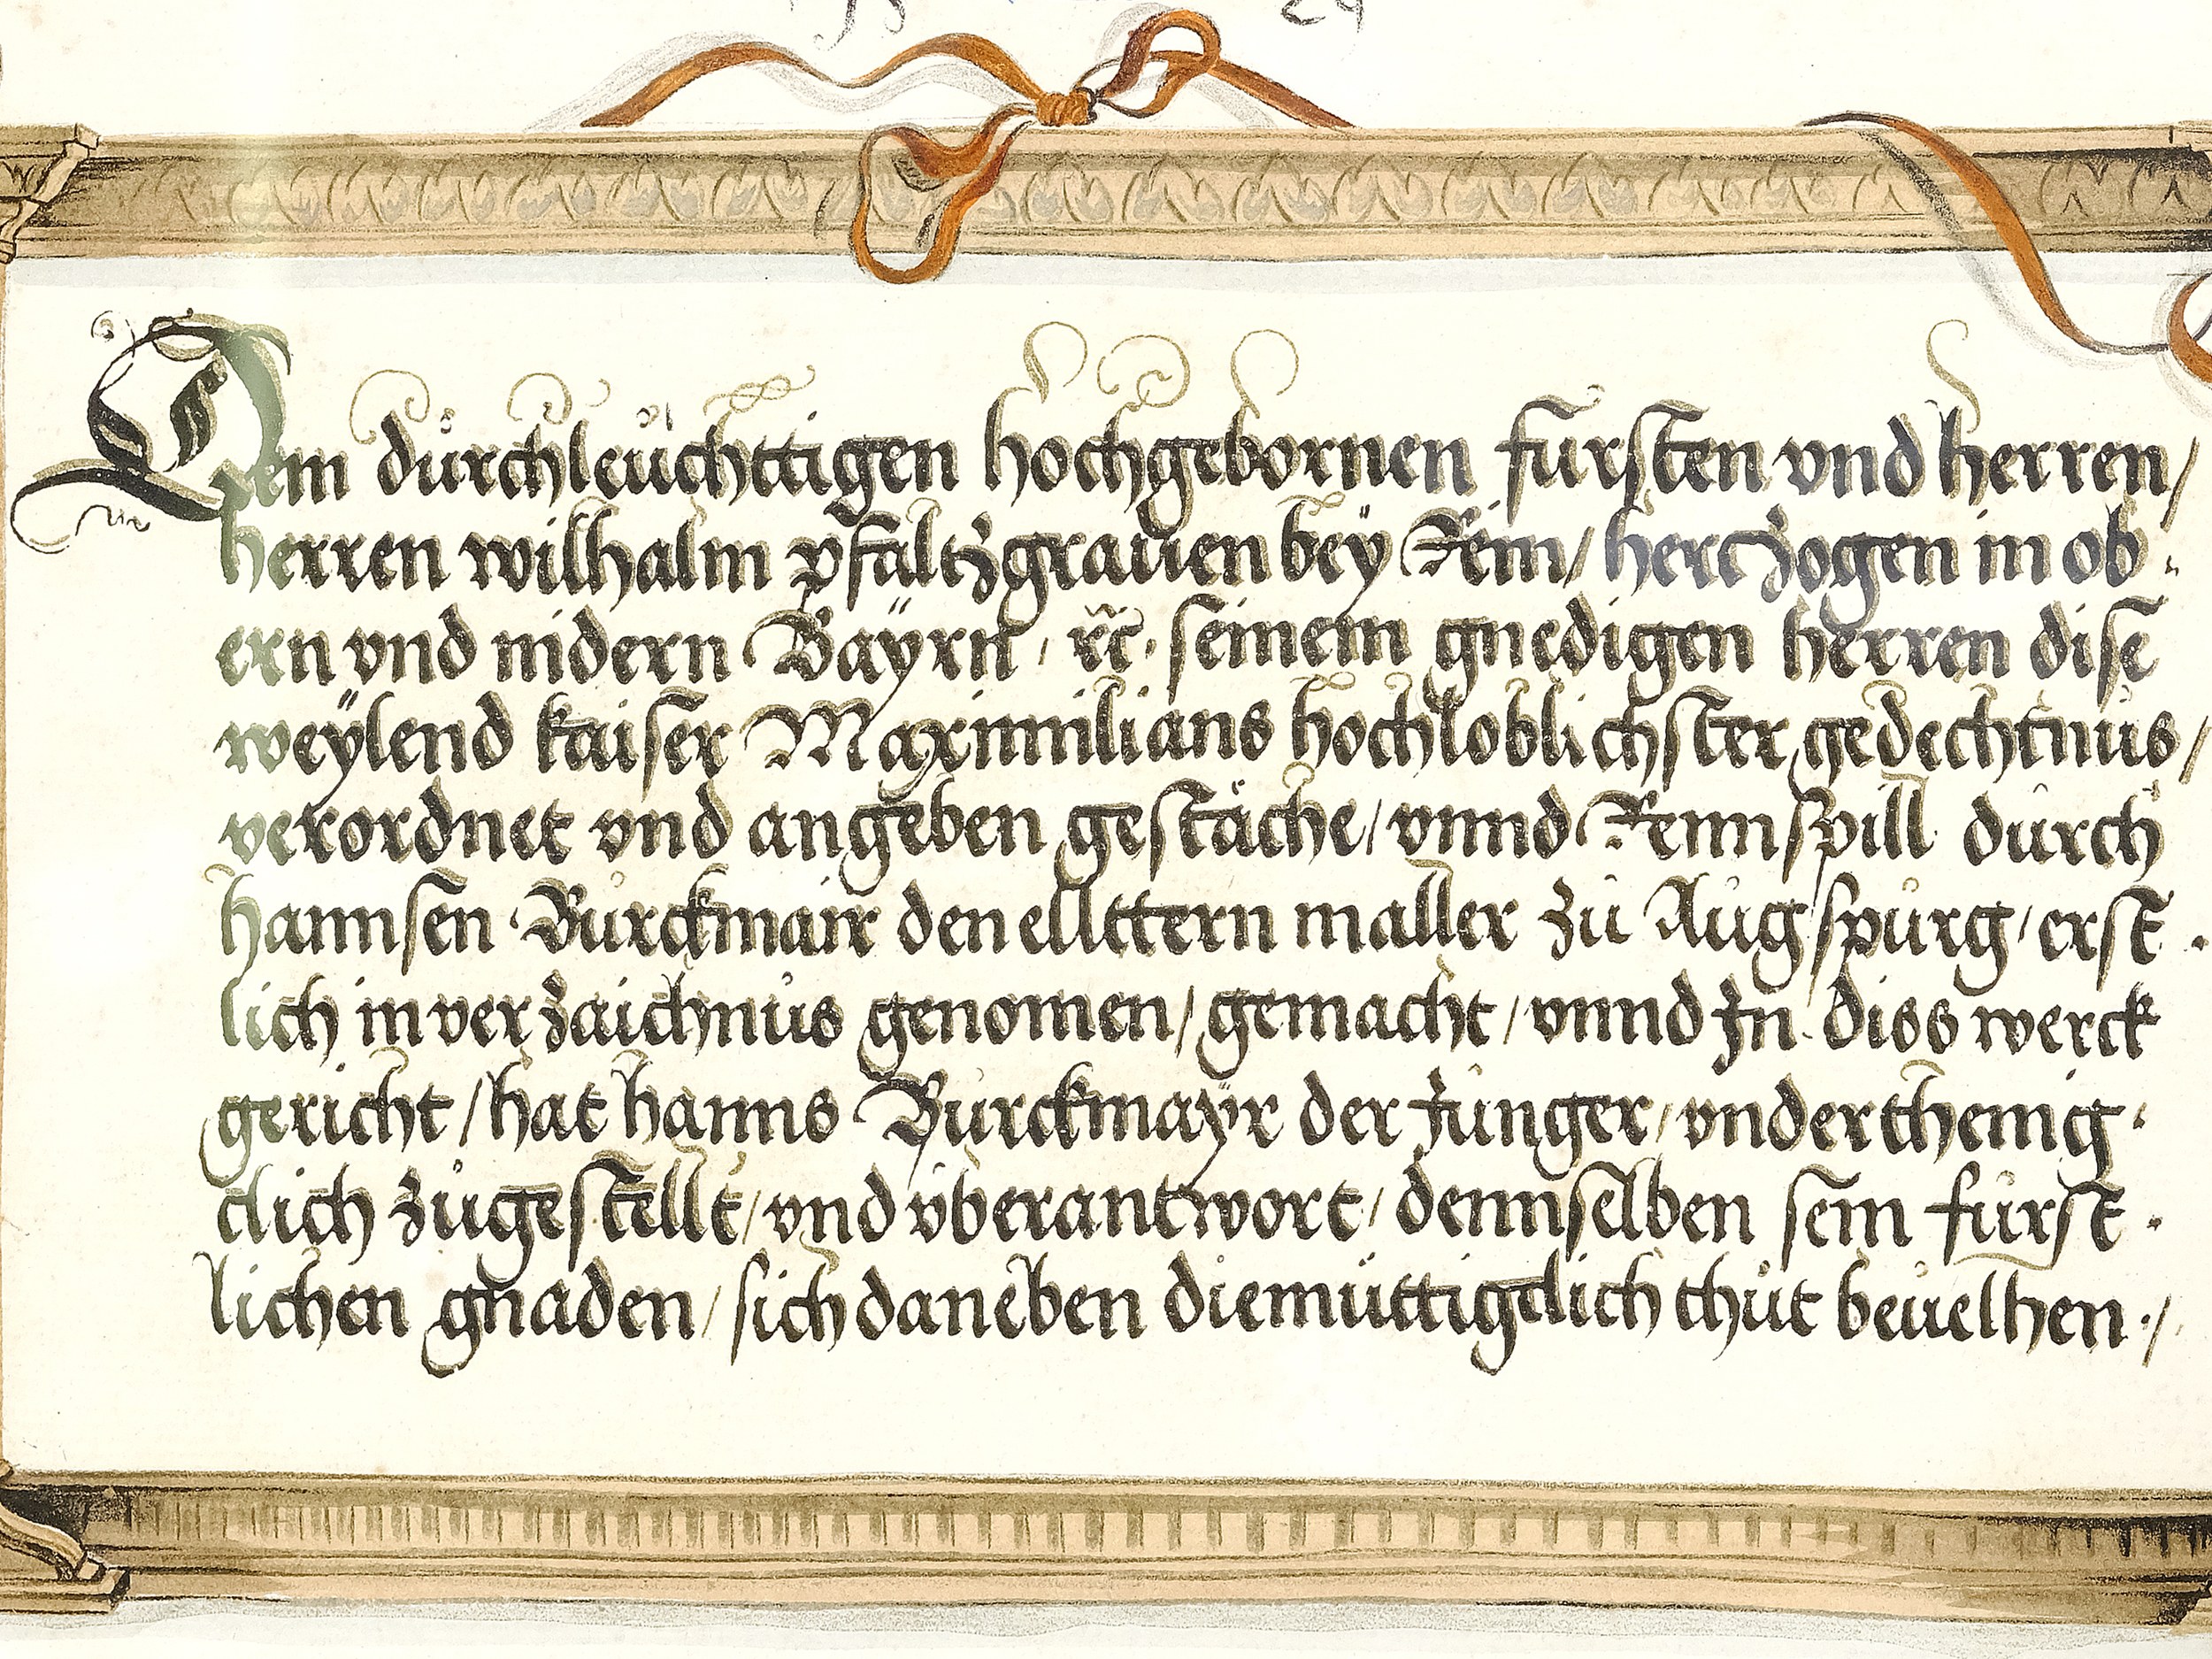 Dem dúrchleúchttigen hochgebornen fürsten vnd herren /
herren wilhalm pfaltzgrauen beÿ Rein / hertzogen in ob-
ern vnd nidern Baÿrn / ꝛc. seinem gnedigen herren dise
weÿlend kaiser Maximilians hochloblichster gedechtnús /
verordnet vnd angeben gestäche / vnnd Rennspill dúrch
hannsen Búrckmair den ellttern maller zú Aúgspúrg / erst-
lich in verzaichnús genomen / gemacht / vnnd In diss werck
gericht / hat hanns Búrckmaÿr der Júnger / vnderthenig-
clich zúgestellt / vnd v̈berantwort / dennselben sein fúrst-
lichen gnaden / sich daneben diemüttigclich thút beúelhen ./